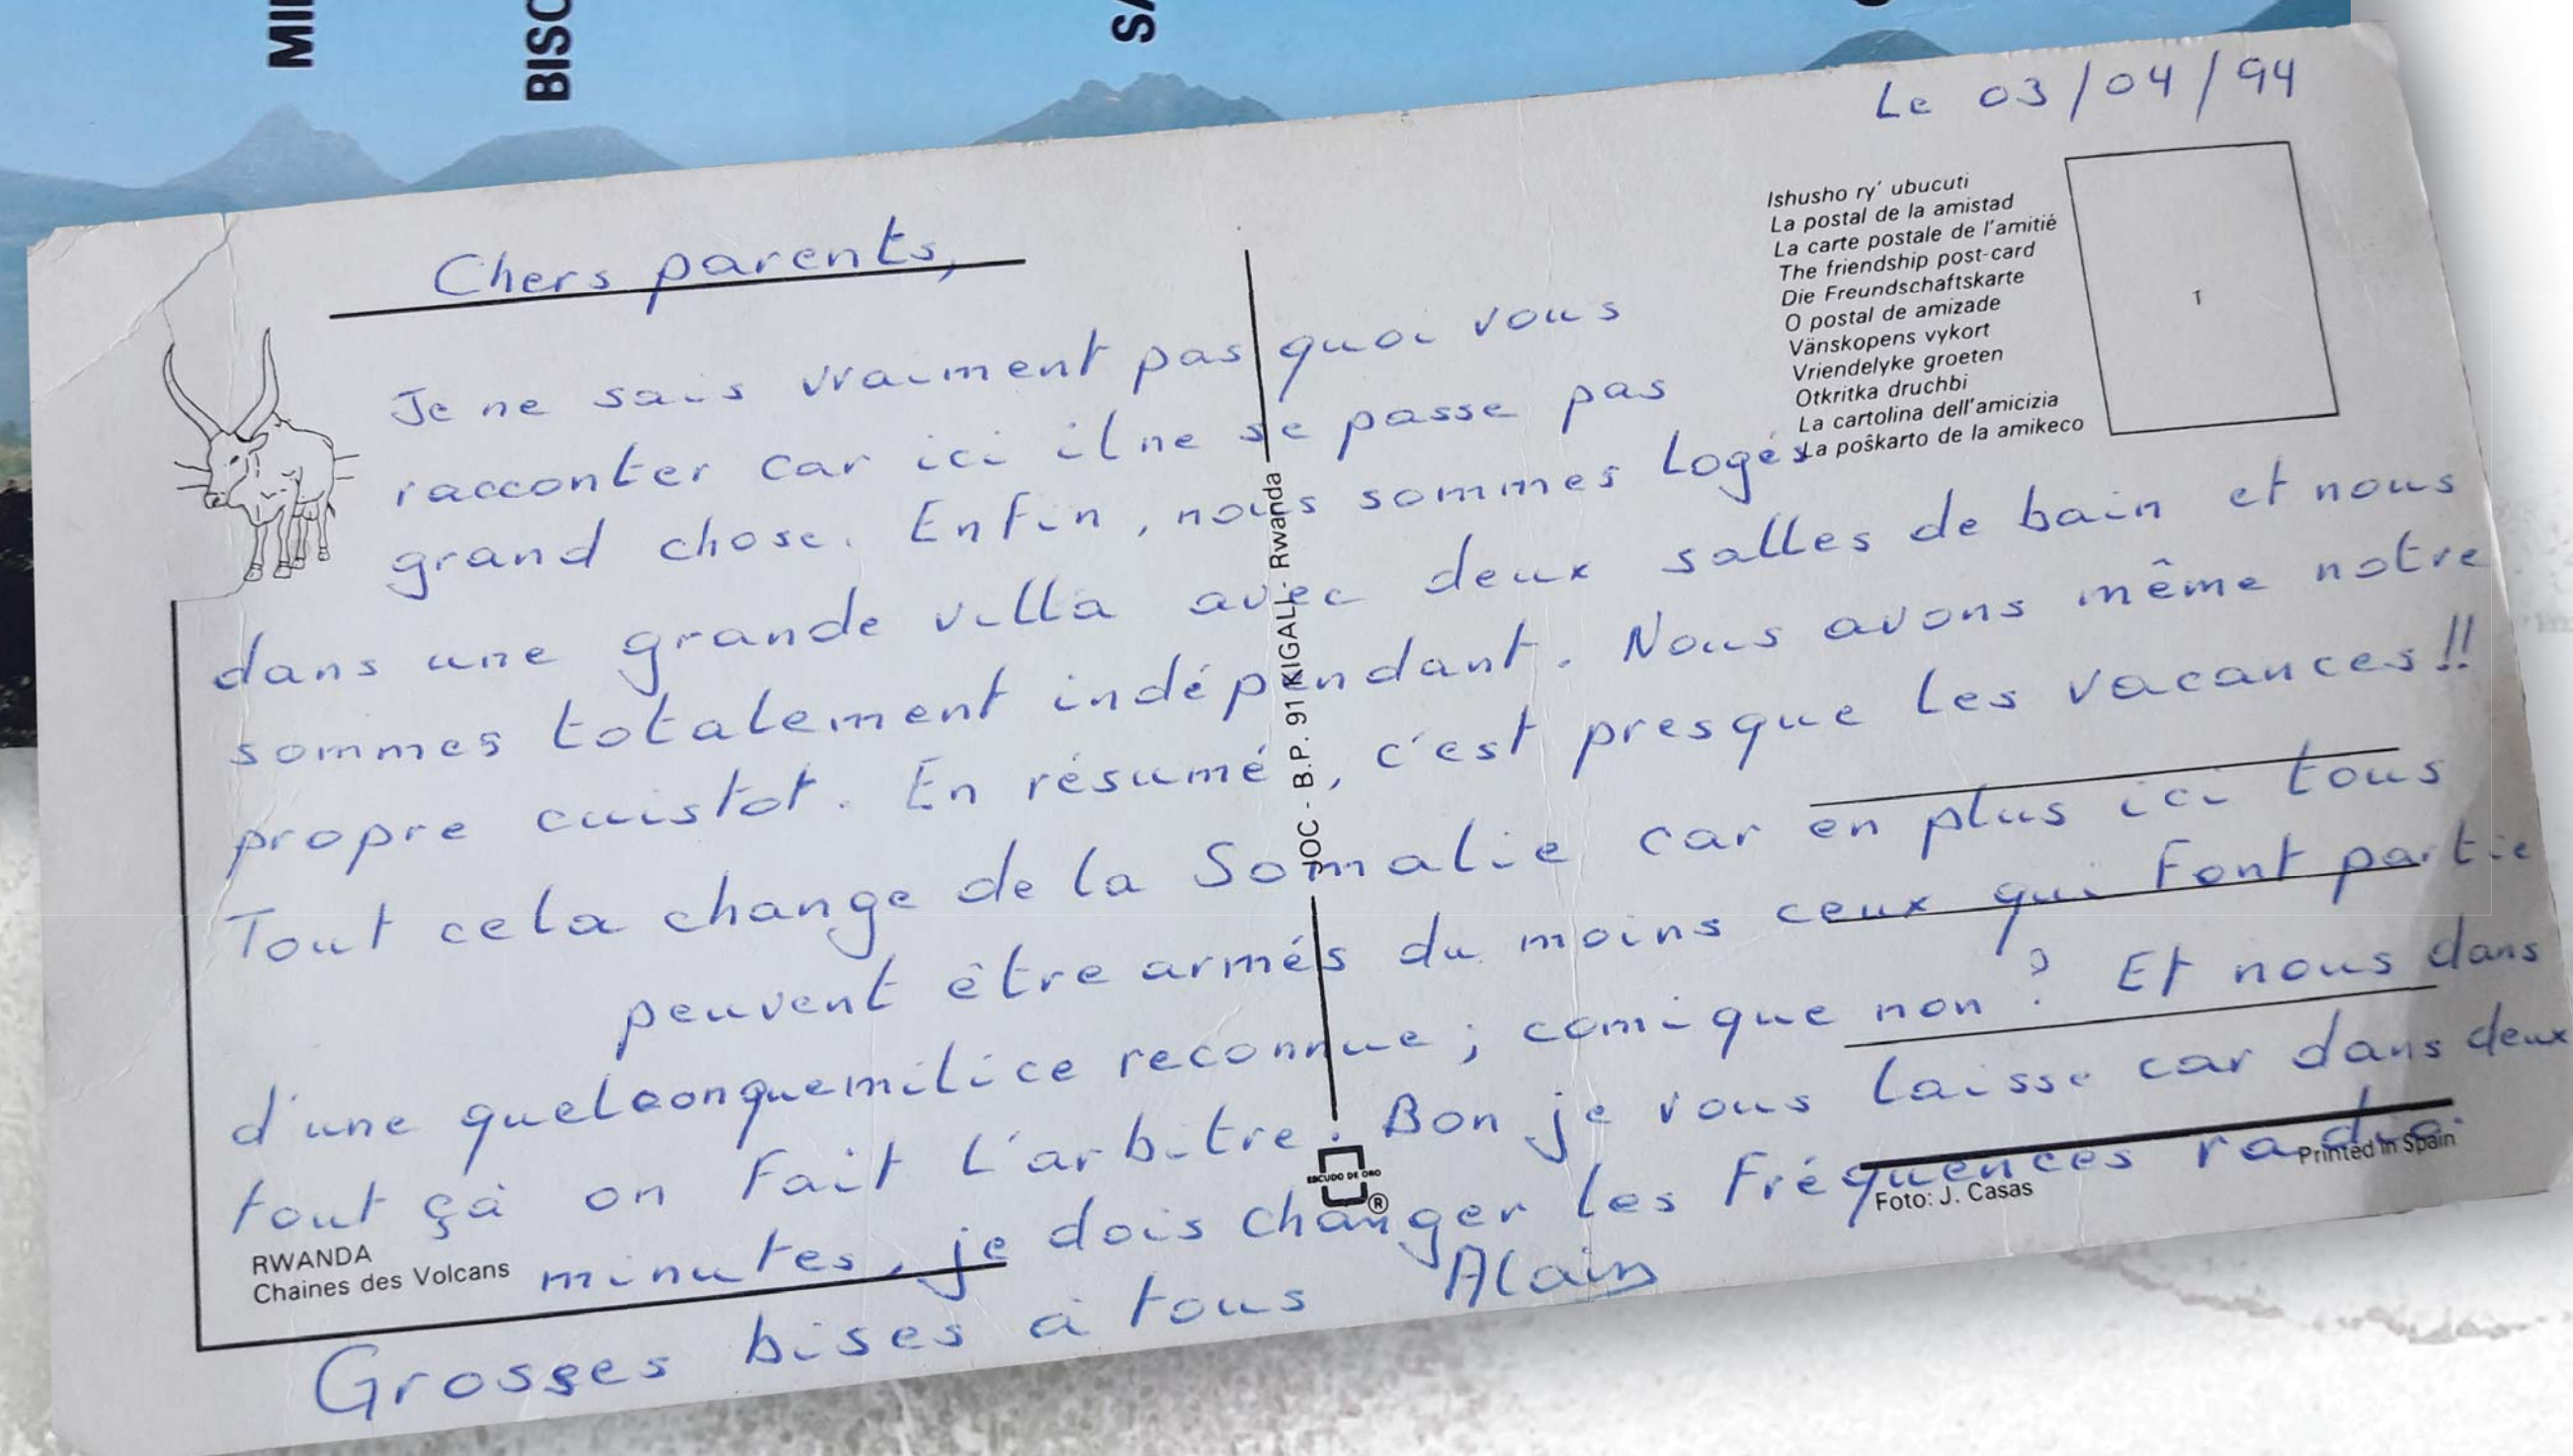 MI
BISC
SA
Le 03/04/94
Ishusho ry' ubucuti
La postal de la amistad
La carte postale de l'amitié
The friendship post-card
Die Freundschaftskarte
O postal de amizade
Vänskopens vykort
Vriendelyke groeten
Otkritka druchbi
La cartolina dell'amicizia
La poŝkarto de la amikeco
T
Chers parents,
Je ne sais vraiment pas quoi vous
racconter car ici il ne se passe pas
grand chose. Enfin, nous sommes logés
dans une grande villa avec deux salles de bain et nous
sommes totalement indépendant. Nous avons même notre
propre cuistot. En résumé, c'est presque les vacances!!
Tout cela change de la Somalie car en plus ici tous
peuvent être armés du moins ceux qui font partie
d'une quelconque milice reconnue; comique non? Et nous dans
tout çà on fait l'arbitre. Bon je vous laisse car dans deux
minutes, je dois changer les fréquences radio.
Grosses bises à tous Alain
JOC - B.P. 91 KIGALI - Rwanda
ESCUDO DE ORO
®
RWANDA
Chaines des Volcans
Foto: J. Casas
Printed in Spain